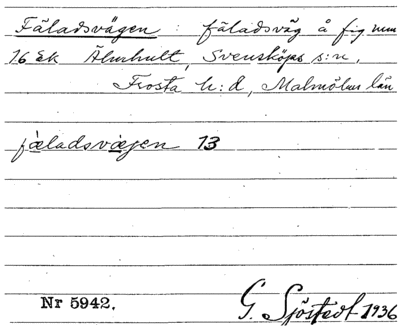 Fäladsvägen : fäladsväg å fig num
16 Ek Älmhult, Svensköps s:n,
Frosta h:d, Malmöhus län
fæladsvæjen 13
Nr 5942.
G. Sjöstedt 1936